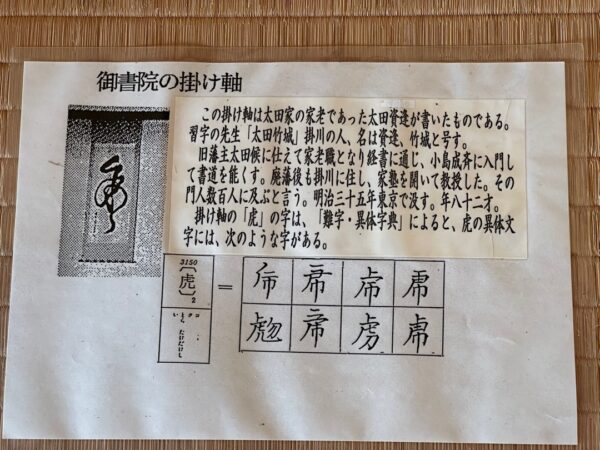 御書院の掛け軸
この掛け軸は太田家の家老であった太田資逢が書いたものである。
習字の先生「太田竹城」掛川の人、名は資逢、竹城と号す。
旧藩主太田候に仕えて家老職となり経書に通じ、小島成斉に入門し
て書道を能くす。廃藩後も掛川に住し、家塾を開いて教授した。その
門人数百人に及ぶと言う。明治三十五年東京で没す。年八十二才。
掛け軸の「虎」の字は、「難字・異体字典」によると、虎の異体文
字には、次のような字がある。
3150
〔虎〕2
=
コ ク
とら